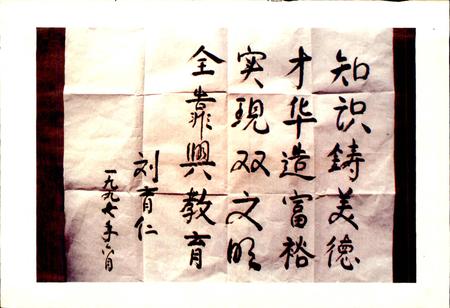 知识铸美德
才华造富裕
实现双文明
全靠興教育
刘育仁
一九九七年六月